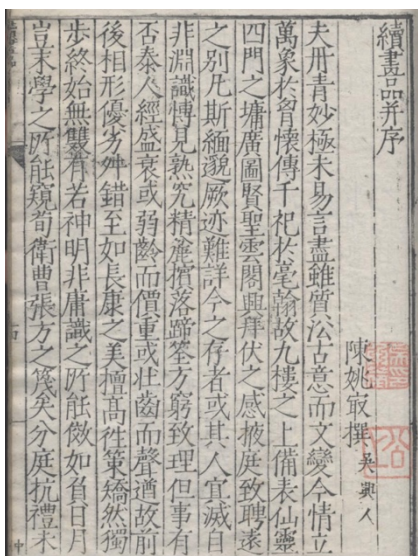 續畫品并序
陳姚㝡撰吳興人
夫丹青妙極未易言盡雖質沿古意而文變今情立
萬象於胷懷傳千祀於毫翰故九樓之上備表仙靈
四門之墉廣圖賢聖雲閣興拜伏之感掖庭致聘遠
之别凡斯緬邈厥迹難詳今之存者或其人冝滅自
非淵識博見熟究精麄擯落蹄筌方窮致理但事有
否泰人經盛衰或弱齡而價重或壮齒而聲遒故前
後相形優劣舛錯至如長康之美擅高徃策矯然獨
歩終始無雙有若神明非庸識之所能傚如負日月
豈末學之所能窺荀衛曹張方之篾矣分庭抗禮未